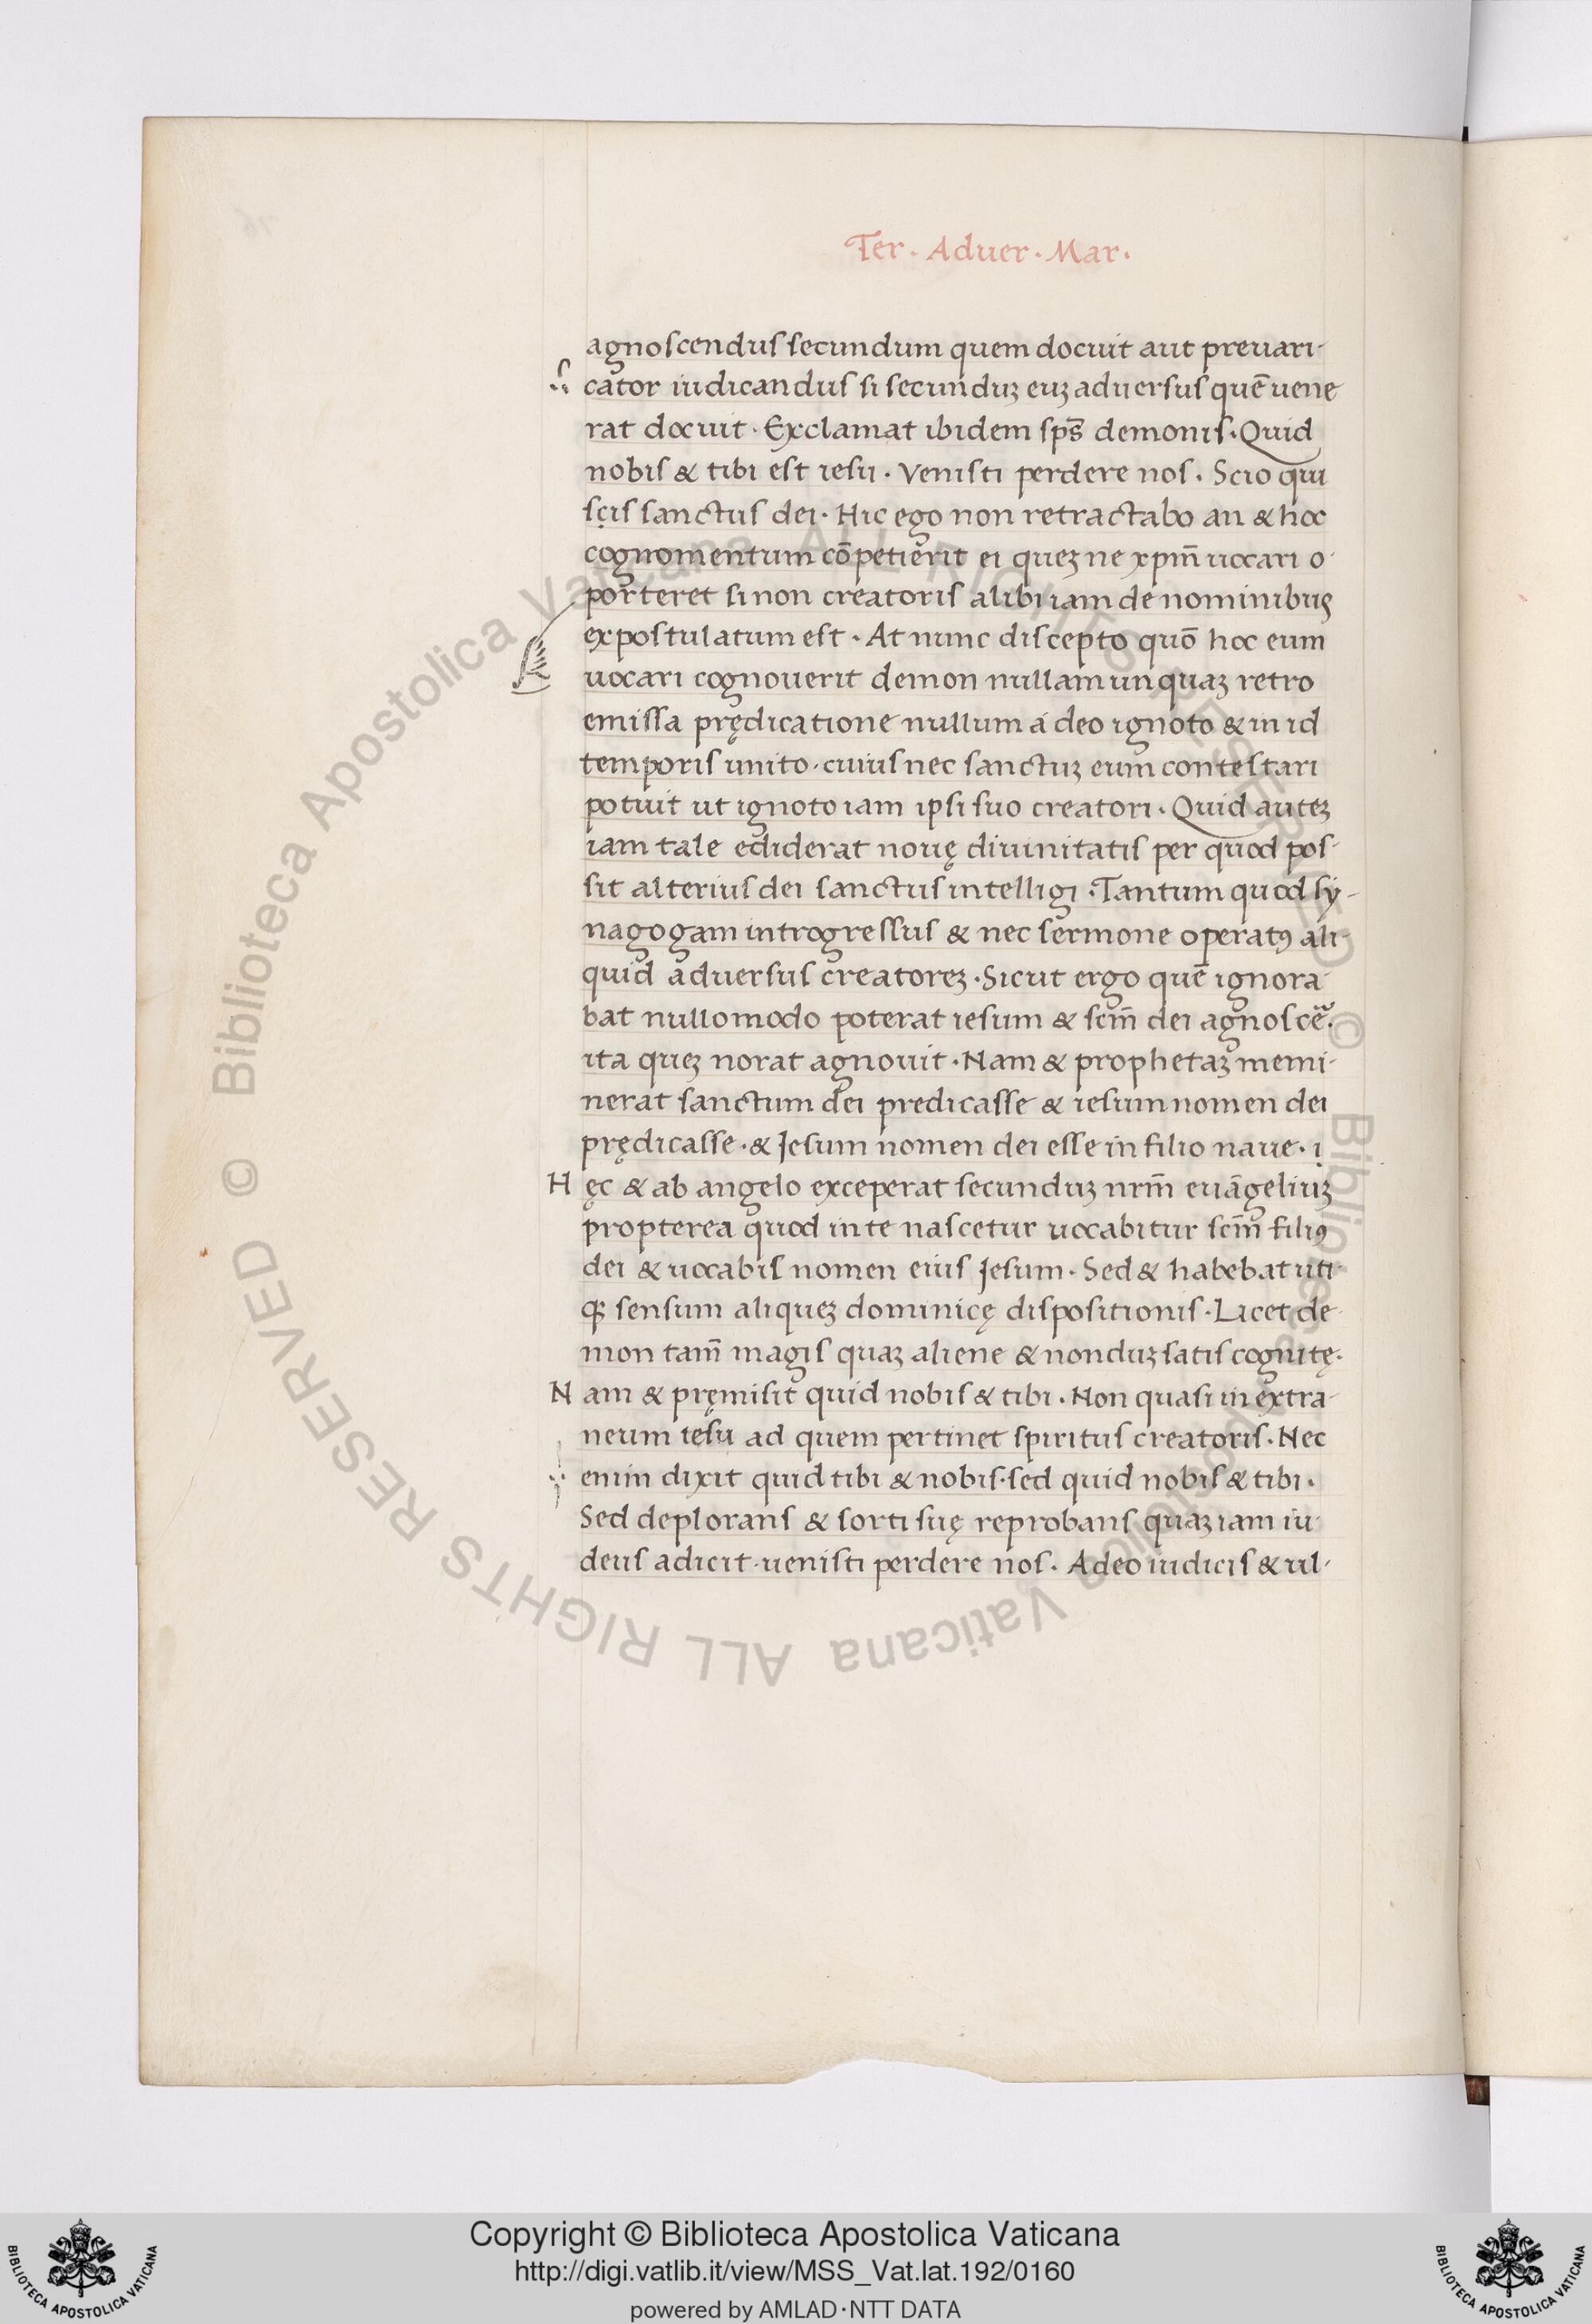 Ter. Aduer. Mar.
agnoscendus secundum quem docuit aut preuari-
cator iudicandus si secunduꝫ euꝫ aduersus quē uene
rat docuit. Exclamat ibidem sps̄ demonis. Quid
nobis & tibi est iesu. Venisti perdere nos. Scio qui
scis sanctus dei. Hic ego non retractabo an & hoc
cognomentum cōpetierit ei queꝫ ne xpm̄ uocari o-
porteret si non creatoris alibi iam de nominibus
expostulatum est. At nunc discepto quō hoc eum
uocari cognouerit demon nullam unquaꝫ retro
emissa prędicatione nullum á deo ignoto & in id
temporis unito. cuius nec sanctuꝫ eum contestari
potuit ut ignoto iam ipsi suo creatori. Quid auteꝫ
iam tale ediderat nouę diuinitatis per quod pos-
sit alterius dei sanctus intelligi. Tantum quod sy-
nagogam introgressus & nec sermone operatꝰ ali-
quid aduersus creatoreꝫ. Sicut ergo quē ignora-
bat nullomodo poterat iesum & scm̄ dei agnosceᷓ.
ita queꝫ norat agnouit. Nam & prophetaꝫ memi-
nerat sanctum dei predicasse & iesum nomen dei
prędicasse. & Jesum nomen dei esse in filio naue. i
Hęc & ab angelo exceperat secunduꝫ nrm̄ euāgeliuꝫ
propterea quod in te nascetur uocabitur scm̄ filiꝰ
dei & uocabis nomen eius Jesum. Sed & habebat uti-
qꝫ sensum aliqueꝫ dominicę dispositionis. Licet de-
mon tam̄ magis quaꝫ aliene & nonduꝫ satis cognitę.
Nam & pręmisit quid nobis & tibi. Non quasi in extra-
neum iesu ad quem pertinet spiritus creatoris. Nec
enim dixit quid tibi & nobis. sed quid nobis & tibi.
Sed deplorans & sorti suę reprobans quaꝫ iam iu-
deus adicit. uenisti perdere nos. Adeo iudicis & ul-
© Biblioteca Apostolica Vaticana ALL RIGHTS RESERVED
© Biblioteca Apostolica Vaticana ALL RIGHTS RESERVED
Copyright © Biblioteca Apostolica Vaticana
http://digi.vatlib.it/view/MSS_Vat.lat.192/0160
powered by AMLAD·NTT DATA
BIBLIOTECA APOSTOLICA VATICANA
BIBLIOTECA APOSTOLICA VATICANA